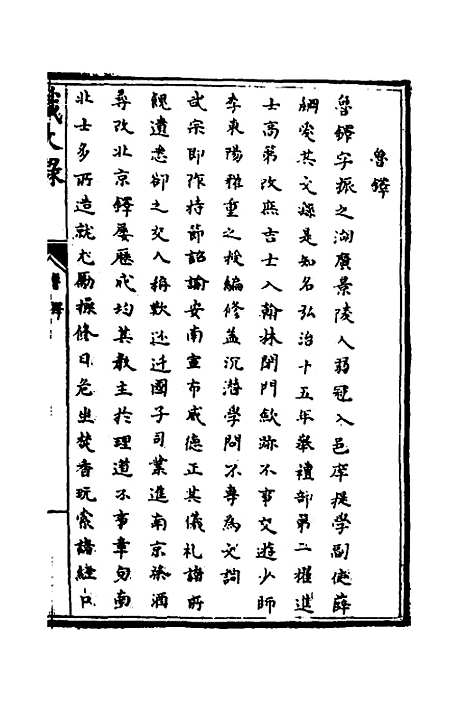 魯鐸
魯鐸字振之湖廣景陵人弱冠入邑庠提學副使薛
綱愛其文繇是知名弘治十五年舉禮部第一擢進
士高第改庶吉士入翰林閉門歛跡不事交遊少師
李東陽雅重之授編修益沉潛學問不專為文詞
武宗即阼持節詔諭安南宣布威德正其儀礼諸所
餽遺悉卻之交人稱歎還迁國子司業進南京祭酒
尋改北京鐸屢歷成均其教主於理道不事章句南
北士多所造就尤勵操修日危坐焚香玩索諸經
魯鐸